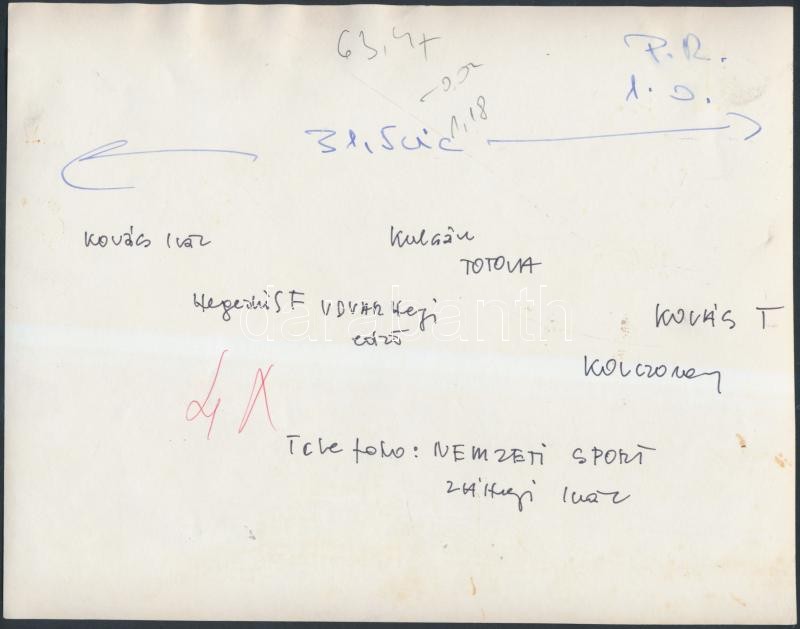 63,47
P.R.
-0.02
1.0.
1,18
31,5 cic
KOVÁCS Iván
Kulcsár
TOTOVA
Hegedűs F UDVARHegi
edző
KOVÁCS T
KOLCZONAY
4 X
Telefoto: NEMZETI SPORT
ZÁHegi Iván
darabanth